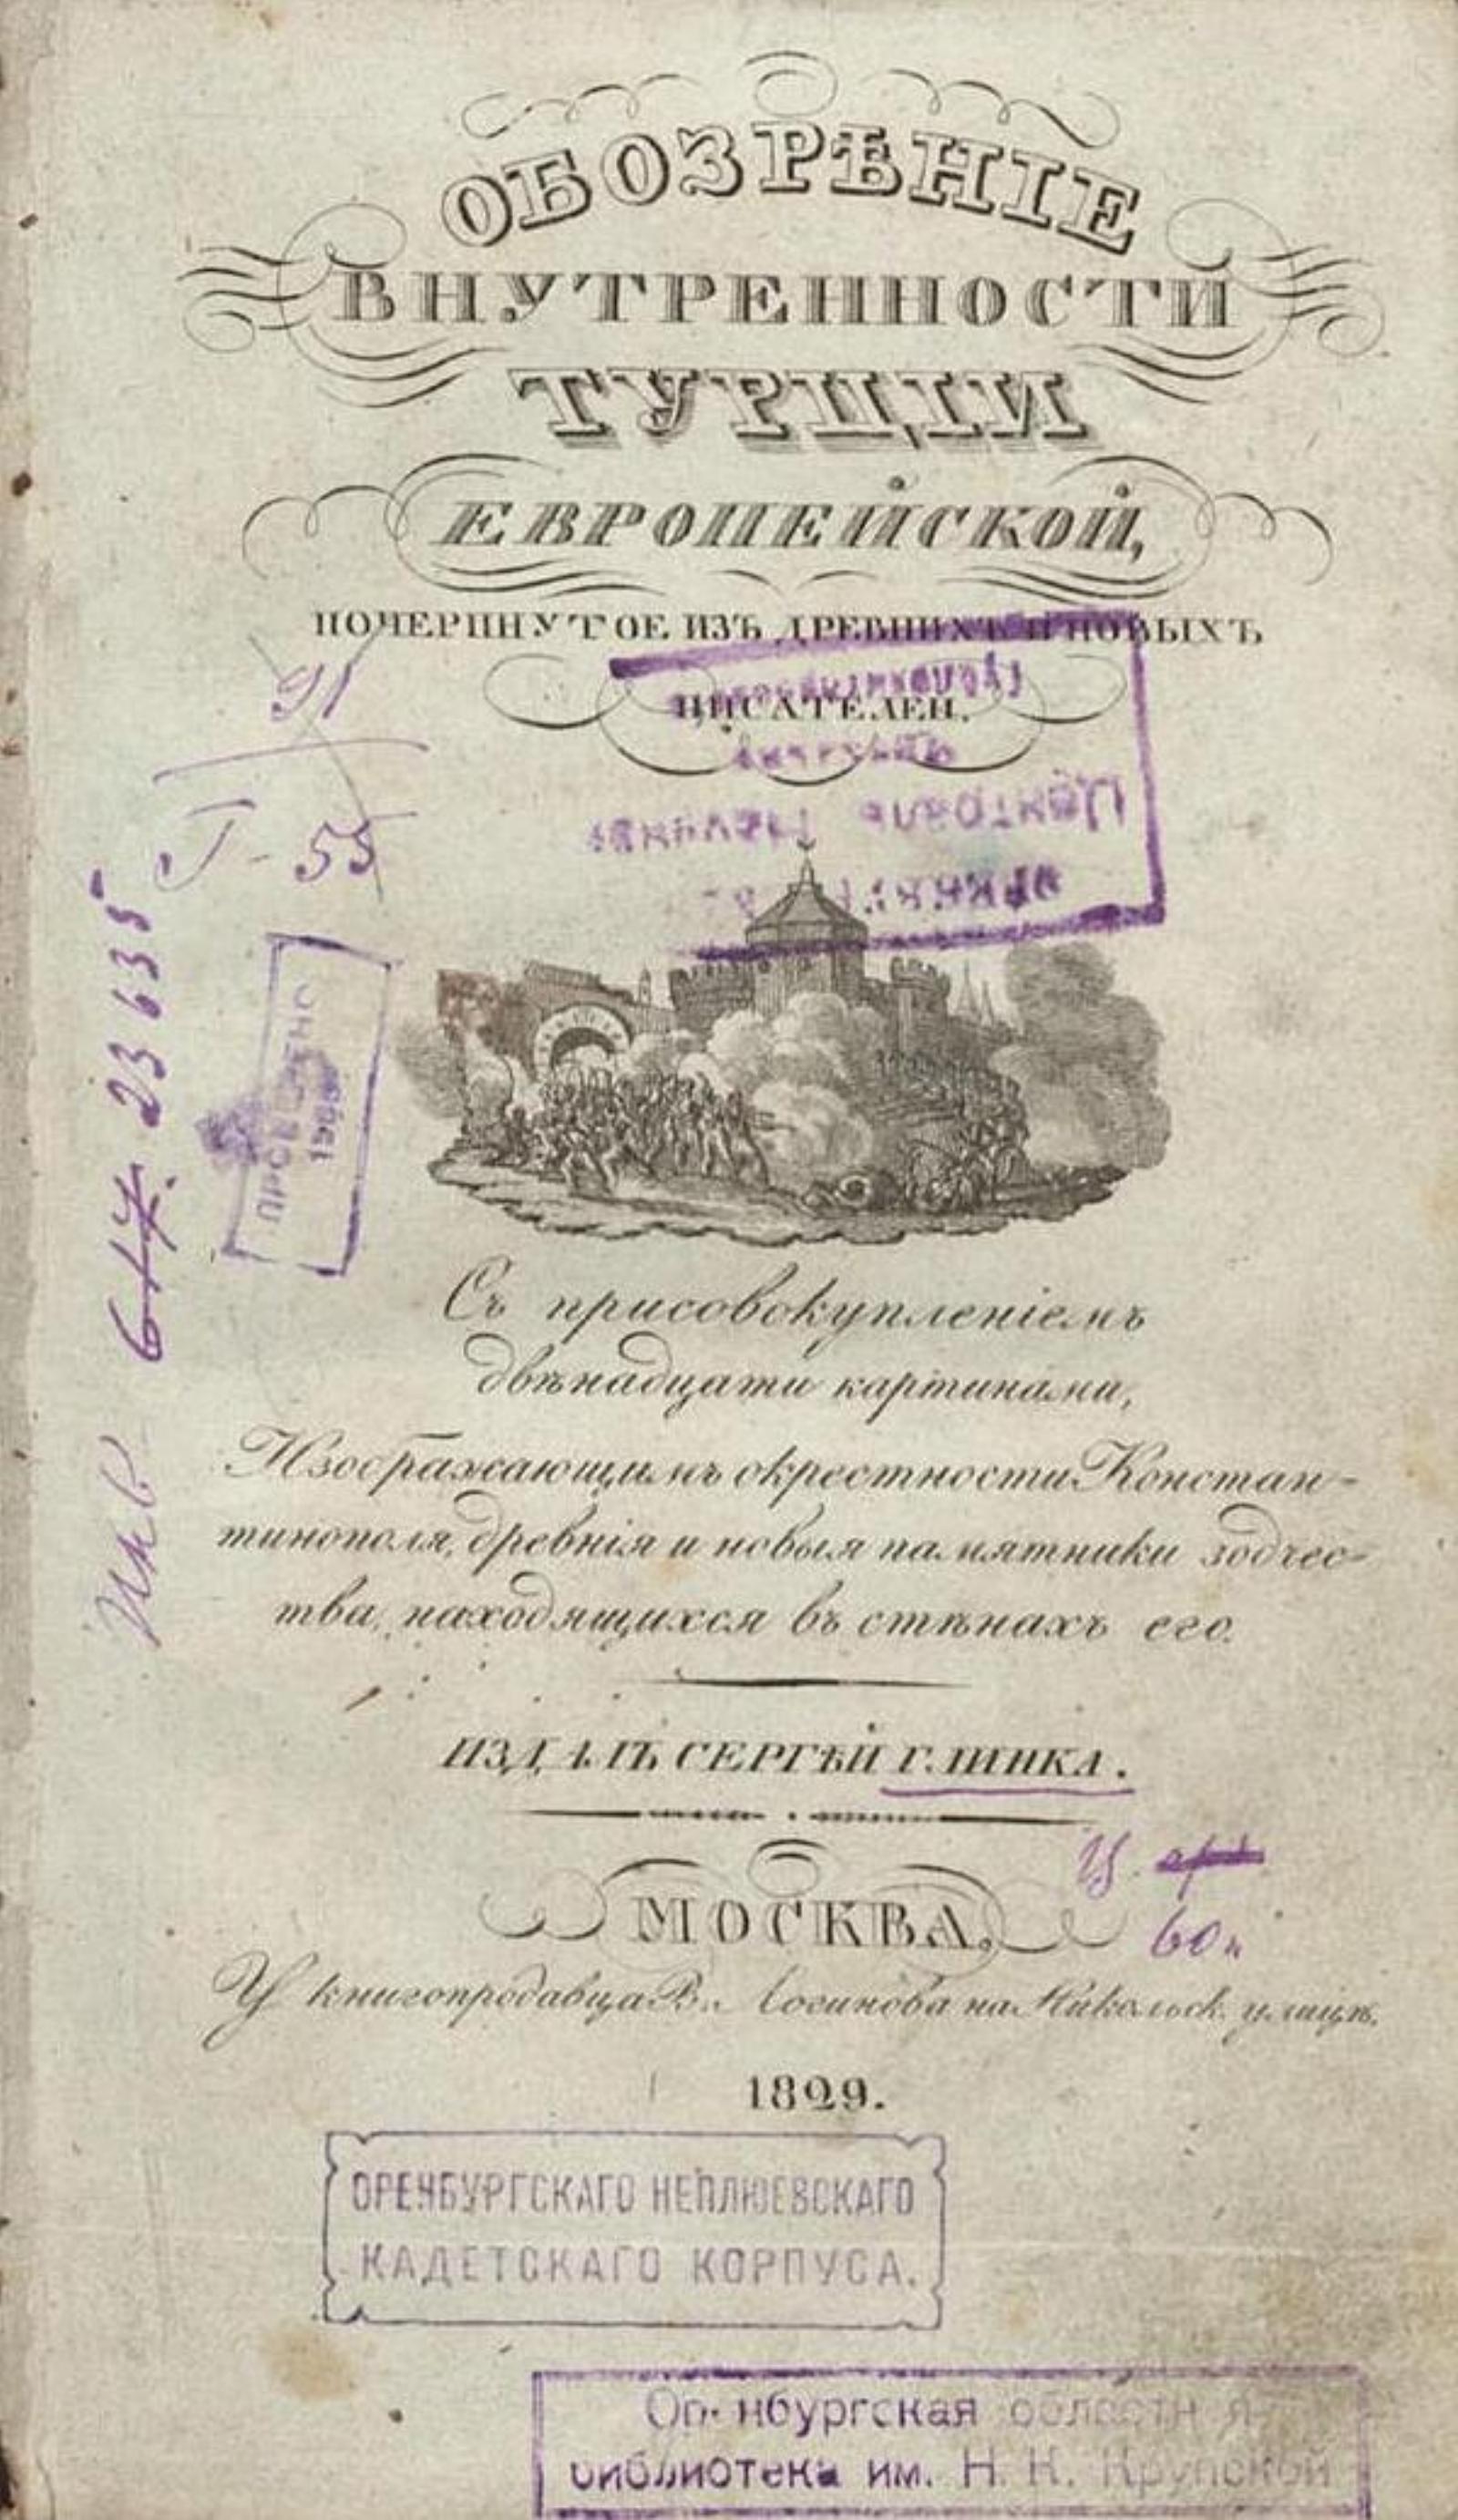 ОБОЗРѢНІЕ
ВНУТРЕННОСТИ
ТУРЦІИ
ЕВРОПЕЙСКОЙ,
ПОЧЕРПНУТОЕ ИЗЪ ДРЕВНИХЪ И НОВЫХЪ
ПИСАТЕЛЕЙ.
91
55
23635
ПРОВЕРЕНО
Съ присовокупленіемъ
двѣнадцати картинами,
Изображающимъ окрестности Констан-
тинополя, древнія и новыя памятники зодчес-
тва, находящихся въ стѣнахъ его.
Инв
ИЗДАЛЪ СЕРГѢЙ ГЛИНКА.
МОСКВА.
60 к
У книгопродавца Логинова на Никольск. улицѣ.
1829.
ОРЕНБУРГСКАГО НЕПЛЮЕВСКАГО
КАДЕТСКАГО КОРПУСА.
Оренбургская областная
библиотека им. Н. К. Крупской